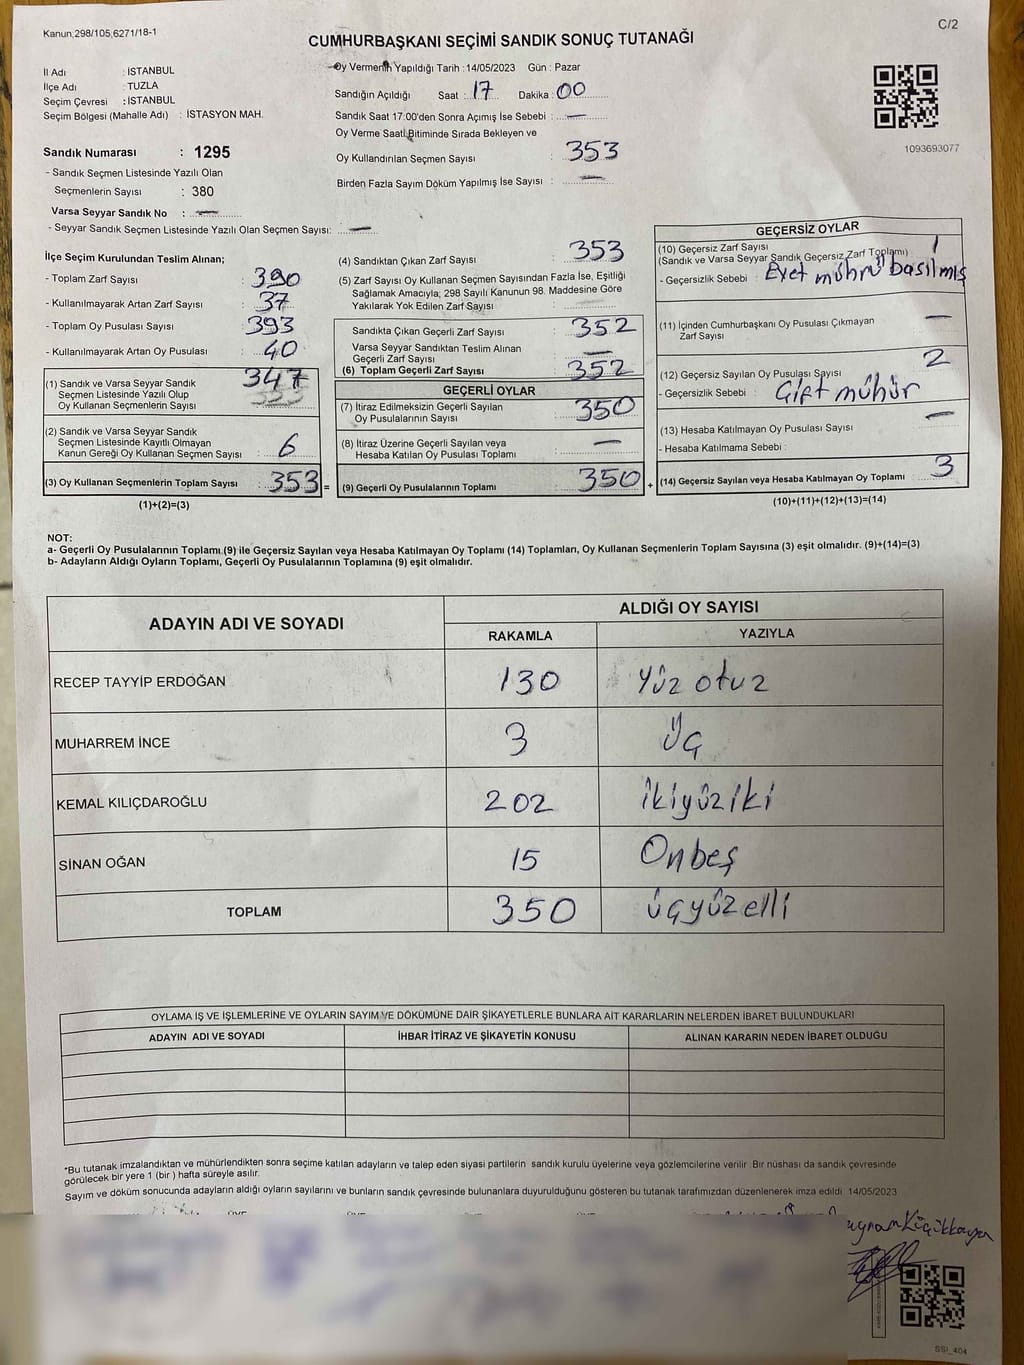 Kanun;298/105,6271/18-1
C/2
CUMHURBAŞKANI SEÇİMİ SANDIK SONUÇ TUTANAĞI
İl Adı : İSTANBUL
İlçe Adı : TUZLA
Seçim Çevresi : İSTANBUL
Seçim Bölgesi (Mahalle Adı) : İSTASYON MAH.
Oy Vermenin Yapıldığı Tarih : 14/05/2023 Gün : Pazar
Sandığın Açıldığı Saat : 17 Dakika : 00
Sandık Saat 17:00'den Sonra Açımış İse Sebebi : —
Oy Verme Saati Bitiminde Sırada Bekleyen ve
Oy Kullandırılan Seçmen Sayısı : 353
Birden Fazla Sayım Döküm Yapılmış İse Sayısı : —
1093693077
Sandık Numarası : 1295
- Sandık Seçmen Listesinde Yazılı Olan
Seçmenlerin Sayısı : 380
Varsa Seyyar Sandık No : —
- Seyyar Sandık Seçmen Listesinde Yazılı Olan Seçmen Sayısı: —
İlçe Seçim Kurulundan Teslim Alınan;
- Toplam Zarf Sayısı : 390
- Kullanılmayarak Artan Zarf Sayısı : 37
- Toplam Oy Pusulası Sayısı : 393
- Kullanılmayarak Artan Oy Pusulası : 40
(1) Sandık ve Varsa Seyyar Sandık
Seçmen Listesinde Yazılı Olup
Oy Kullanan Seçmenlerin Sayısı : 347
(2) Sandık ve Varsa Seyyar Sandık
Seçmen Listesinde Kayıtlı Olmayan
Kanun Gereği Oy Kullanan Seçmen Sayısı : 6
(3) Oy Kullanan Seçmenlerin Toplam Sayısı : 353 =
(1)+(2)=(3)
(4) Sandıktan Çıkan Zarf Sayısı : 353
(5) Zarf Sayısı Oy Kullanan Seçmen Sayısından Fazla İse, Eşitliği
Sağlamak Amacıyla; 298 Sayılı Kanunun 98. Maddesine Göre
Yakılarak Yok Edilen Zarf Sayısı :
Sandıkta Çıkan Geçerli Zarf Sayısı : 352
Varsa Seyyar Sandıktan Teslim Alınan
Geçerli Zarf Sayısı : —
(6) Toplam Geçerli Zarf Sayısı : 352
GEÇERLİ OYLAR
(7) İtiraz Edilmeksizin Geçerli Sayılan
Oy Pusulalarının Sayısı : 350
(8) İtiraz Üzerine Geçerli Sayılan veya
Hesaba Katılan Oy Pusulası Toplamı : —
(9) Geçerli Oy Pusulalarının Toplamı : 350 +
GEÇERSİZ OYLAR
(10) Geçersiz Zarf Sayısı : 1
(Sandık ve Varsa Seyyar Sandık Geçersiz Zarf Toplamı)
- Geçersizlik Sebebi : Evet mührü basılmış
(11) İçinden Cumhurbaşkanı Oy Pusulası Çıkmayan
Zarf Sayısı : —
(12) Geçersiz Sayılan Oy Pusulası Sayısı : 2
- Geçersizlik Sebebi : Çift mühür
(13) Hesaba Katılmayan Oy Pusulası Sayısı : —
- Hesaba Katılmama Sebebi :
(14) Geçersiz Sayılan veya Hesaba Katılmayan Oy Toplamı : 3
(10)+(11)+(12)+(13)=(14)
NOT:
a- Geçerli Oy Pusulalarının Toplamı (9) ile Geçersiz Sayılan veya Hesaba Katılmayan Oy Toplamı (14) Toplamları, Oy Kullanan Seçmenlerin Toplam Sayısına (3) eşit olmalıdır. (9)+(14)=(3)
b- Adayların Aldığı Oyların Toplamı, Geçerli Oy Pusulalarının Toplamına (9) eşit olmalıdır.
ADAYIN ADI VE SOYADI ALDIĞI OY SAYISI
RAKAMLA YAZIYLA
RECEP TAYYİP ERDOĞAN 130 Yüz otuz
MUHARREM İNCE 3 Üç
KEMAL KILIÇDAROĞLU 202 İkiyüziki
SİNAN OĞAN 15 Onbeş
TOPLAM 350 üçyüzelli
OYLAMA İŞ VE İŞLEMLERİNE VE OYLARIN SAYIM VE DÖKÜMÜNE DAİR ŞİKAYETLERLE BUNLARA AİT KARARLARIN NELERDEN İBARET BULUNDUKLARI
ADAYIN ADI VE SOYADI İHBAR İTİRAZ VE ŞİKAYETİN KONUSU ALINAN KARARIN NEDEN İBARET OLDUĞU
*Bu tutanak imzalandıktan ve mühürlendikten sonra seçime katılan adayların ve talep eden siyasi partilerin sandık kurulu üyelerine veya gözlemcilerine verilir. Bir nüshası da sandık çevresinde
görülecek bir yere 1 (bir ) hafta süreyle asılır.
Sayım ve döküm sonucunda adayların aldığı oyların sayılarını ve bunların sandık çevresinde bulunanlara duyurulduğunu gösteren bu tutanak tarafımızdan düzenlenerek imza edildi. 14/05/2023
Küçükkaya
SSI_404